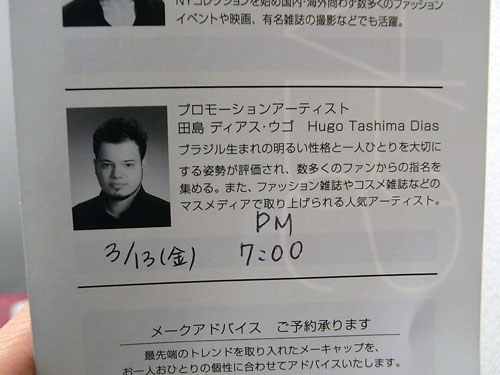 NYコレクションを始め国内・海外問わず数多くのファッション
イベントや映画、有名雑誌の撮影などでも活躍。
プロモーションアーティスト
田島 ディアス・ウゴ Hugo Tashima Dias
ブラジル生まれの明るい性格と一人ひとりを大切に
する姿勢が評価され、数多くのファンからの指名を
集める。また、ファッション雑誌やコスメ雑誌などの
マスメディアで取り上げられる人気アーティスト。
PM
3/13(金) 7:00
メークアドバイス ご予約承ります
最先端のトレンドを取り入れたメーキャップを、
お一人おひとりの個性に合わせてアドバイスいたします。